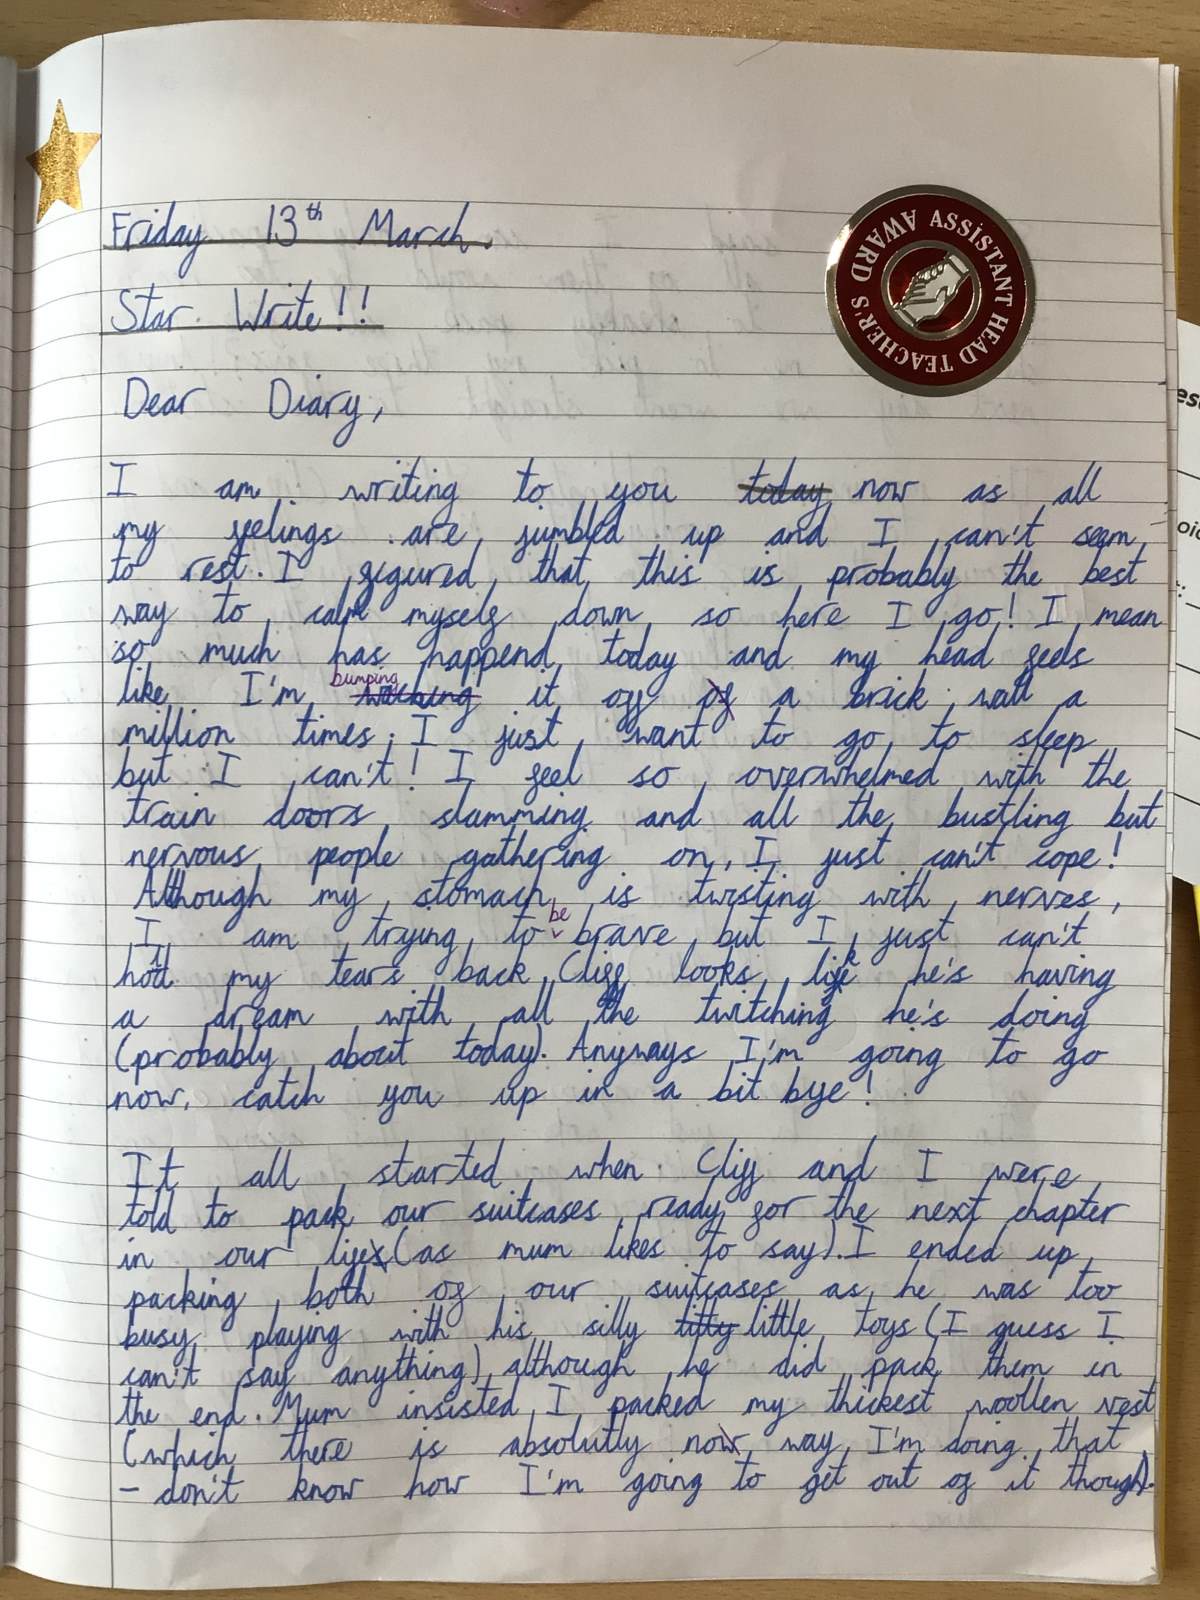 Friday 13th March.
ASSISTANT HEAD TEACHER'S AWARD
Star Write!!
Dear Diary,
I am writing to you today now as all
my feelings are jumbled up and I can't seem
to rest. I figured that this is probably the best
way to calm myself down so here I go! I mean
so much has happend today and my head feels
like I'm bumping it off of a brick wall a
million times. I just want to go to sleep
but I can't! I feel so overwhelmed with the
train doors slamming and all the bustling but
nervous people gathering on, I just can't cope!
Although my stomach is twisting with nerves,
I am trying to be brave but I just can't
hold my tears back. Cliff looks like he's having
a dream with all the twitching he's doing
(probably about today). Anyways I'm going to go
now, catch you up in a bit bye!
It all started when Cliff and I were
told to pack our suitcases ready for the next chapter
in our lifes (as mum likes to say). I ended up
packing both of our suitcases as he was too
busy playing with his silly titty little toys (I guess I
can't say anything) although he did pack them in
the end. Mum insisted I packed my thickest woollen vest
(which there is absolutly no way I'm doing that
- don't know how I'm going to get out of it though).